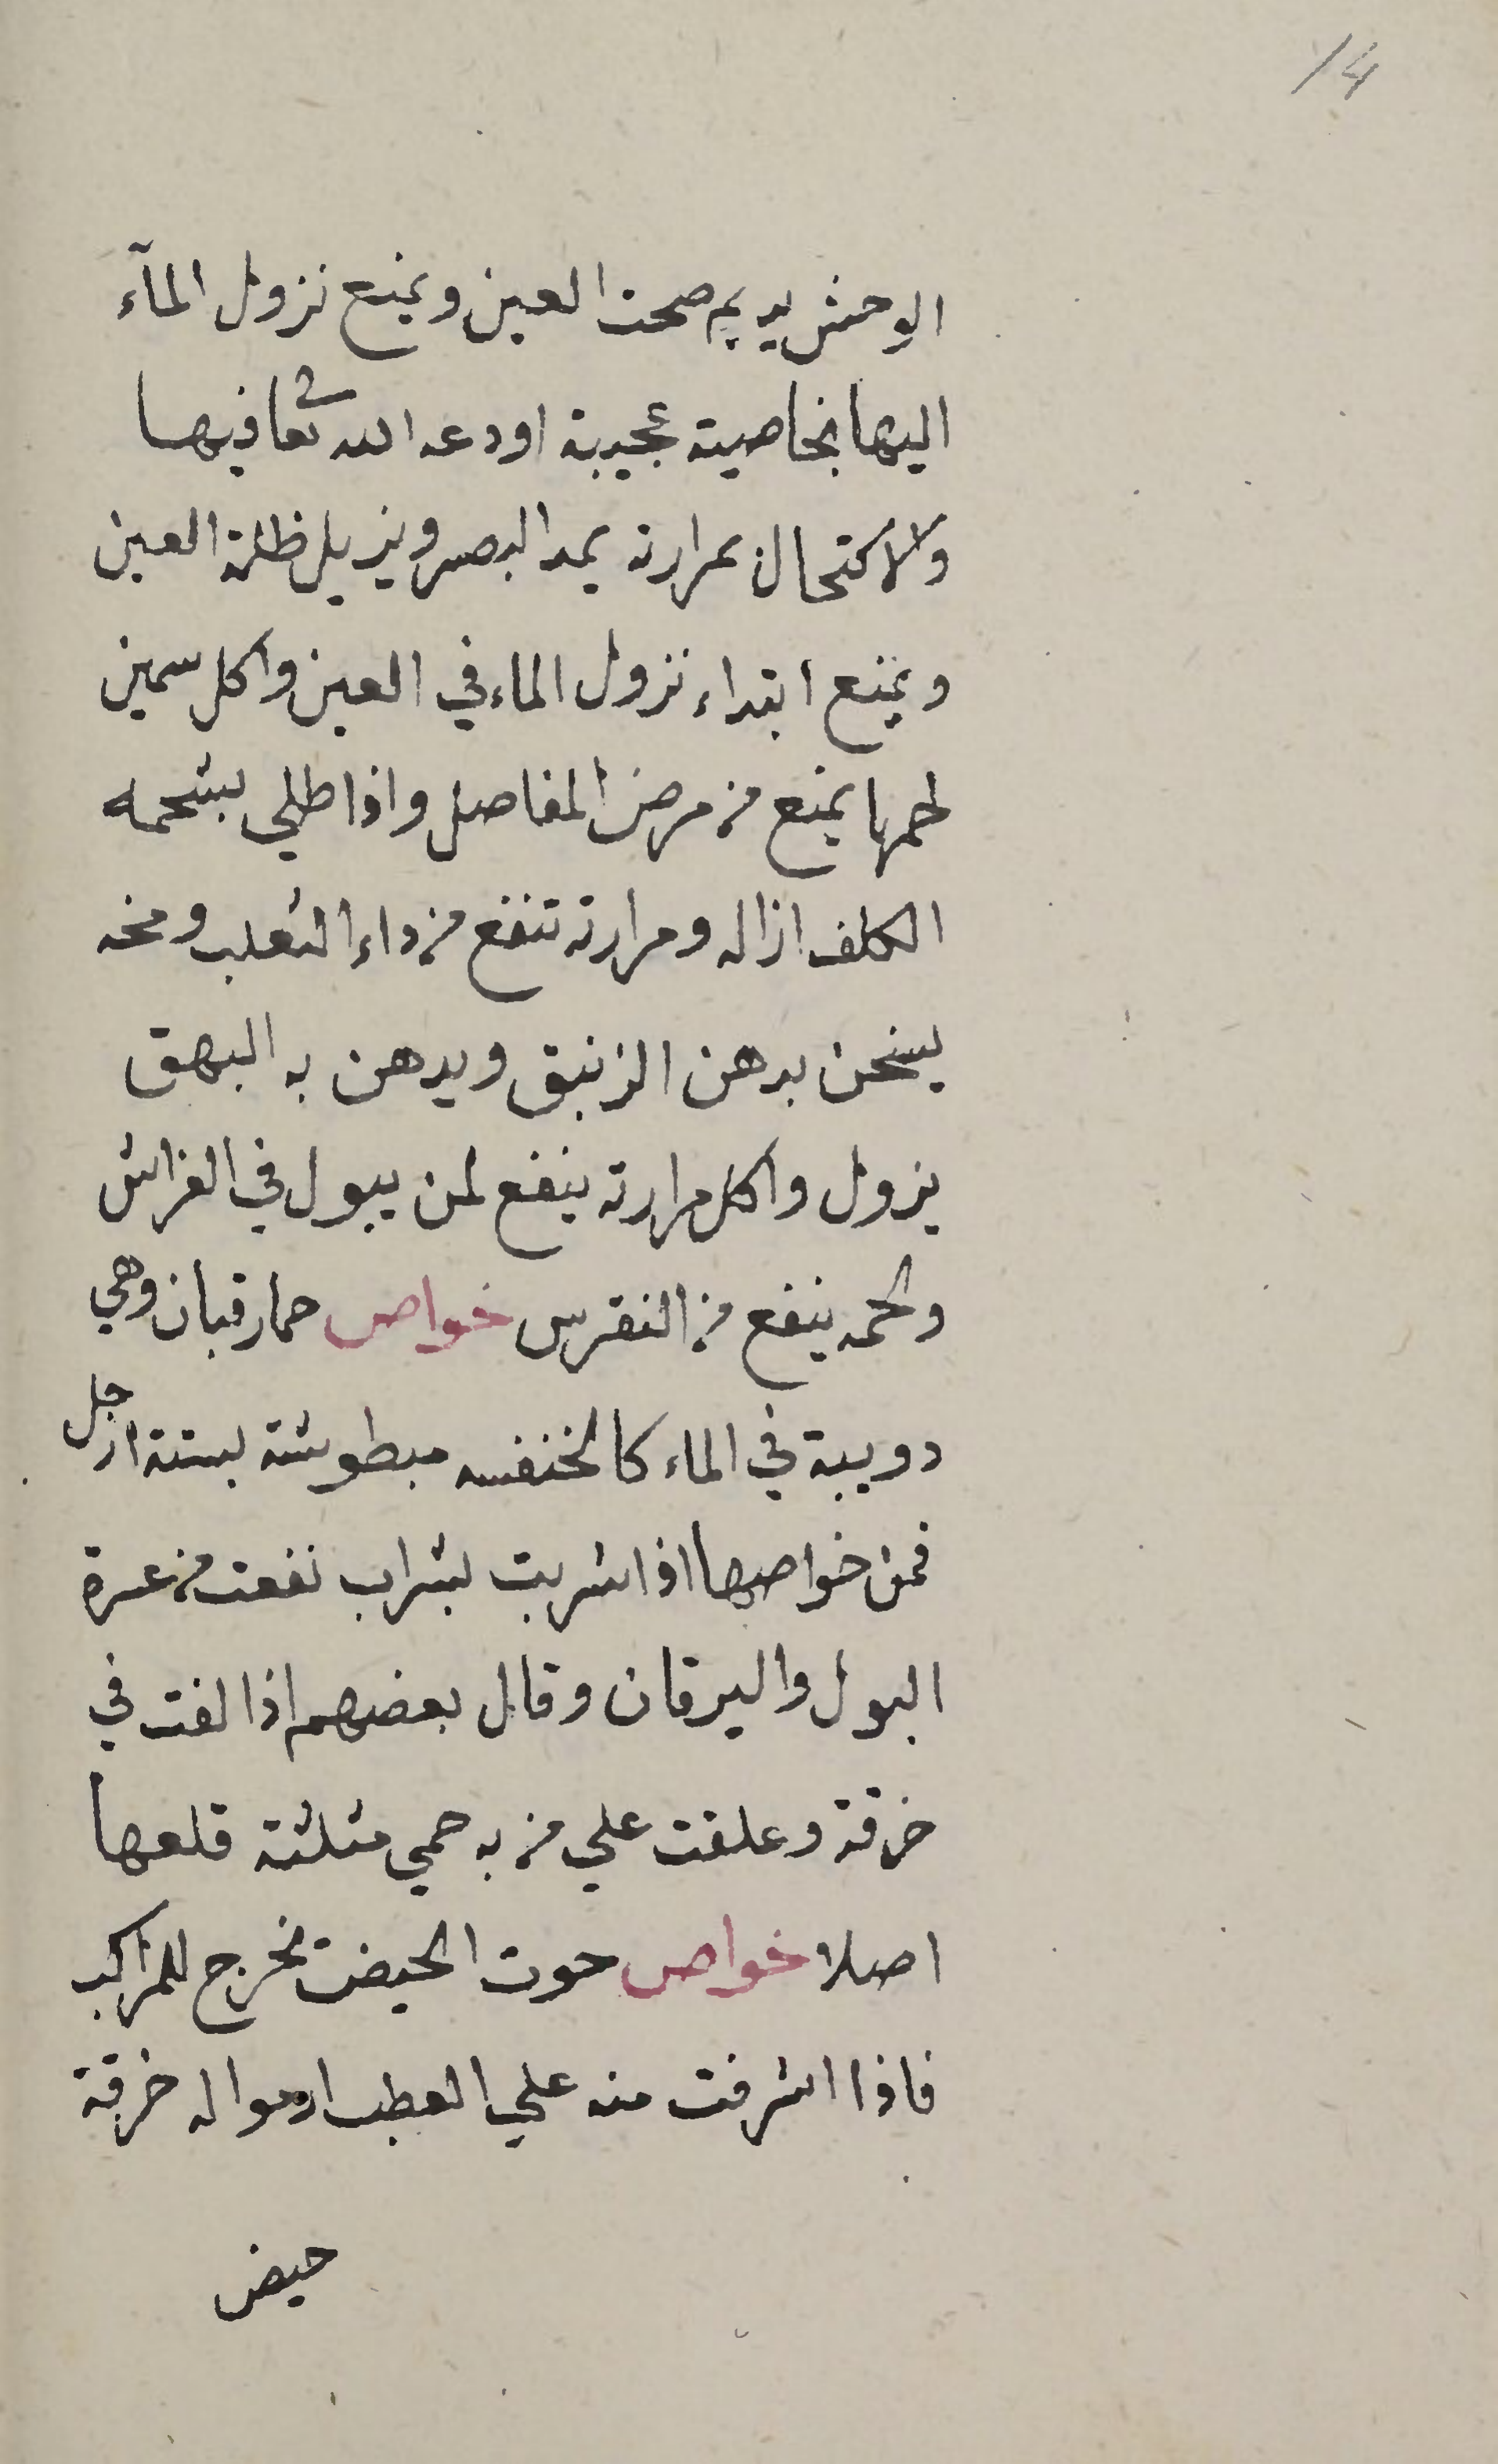 14
الوحش يديم صحت العين ويمنع نزول المآء
اليها بخاصية عجيبة اودعه الله تعا فيها
ولاكتحال بمرارته يمد البصر ويزيل ظلمة العين
ويمنع ابتداء نزول الماء في العين واكل سمين
لحمها يمنع من مرض المفاصل واذا طلي بشحمه
الكلف ازاله ومرارته تنفع من داء الثعلب ومخه
يسخن بدهن الزنبق ويدهن به البهق
يزول واكل مرارته ينفع لمن يبول في الفراش
ولحمه ينفع من النقرس خواص حمار قبان وهي
دويبة في الماء كالخنفسه مبطوشة بستة ارجل
فمن خواصها اذا شربت بشراب نفعت من عسرة
البول واليرقان وقال بعضهم اذا لفت في
خرقة وعلقت علي من به حمي مثلثة قلعها
اصلا خواص حوت الحيض تخرج للمراكب
فاذا اشرفت منه علي العطب ارموا له خرقة
حيض